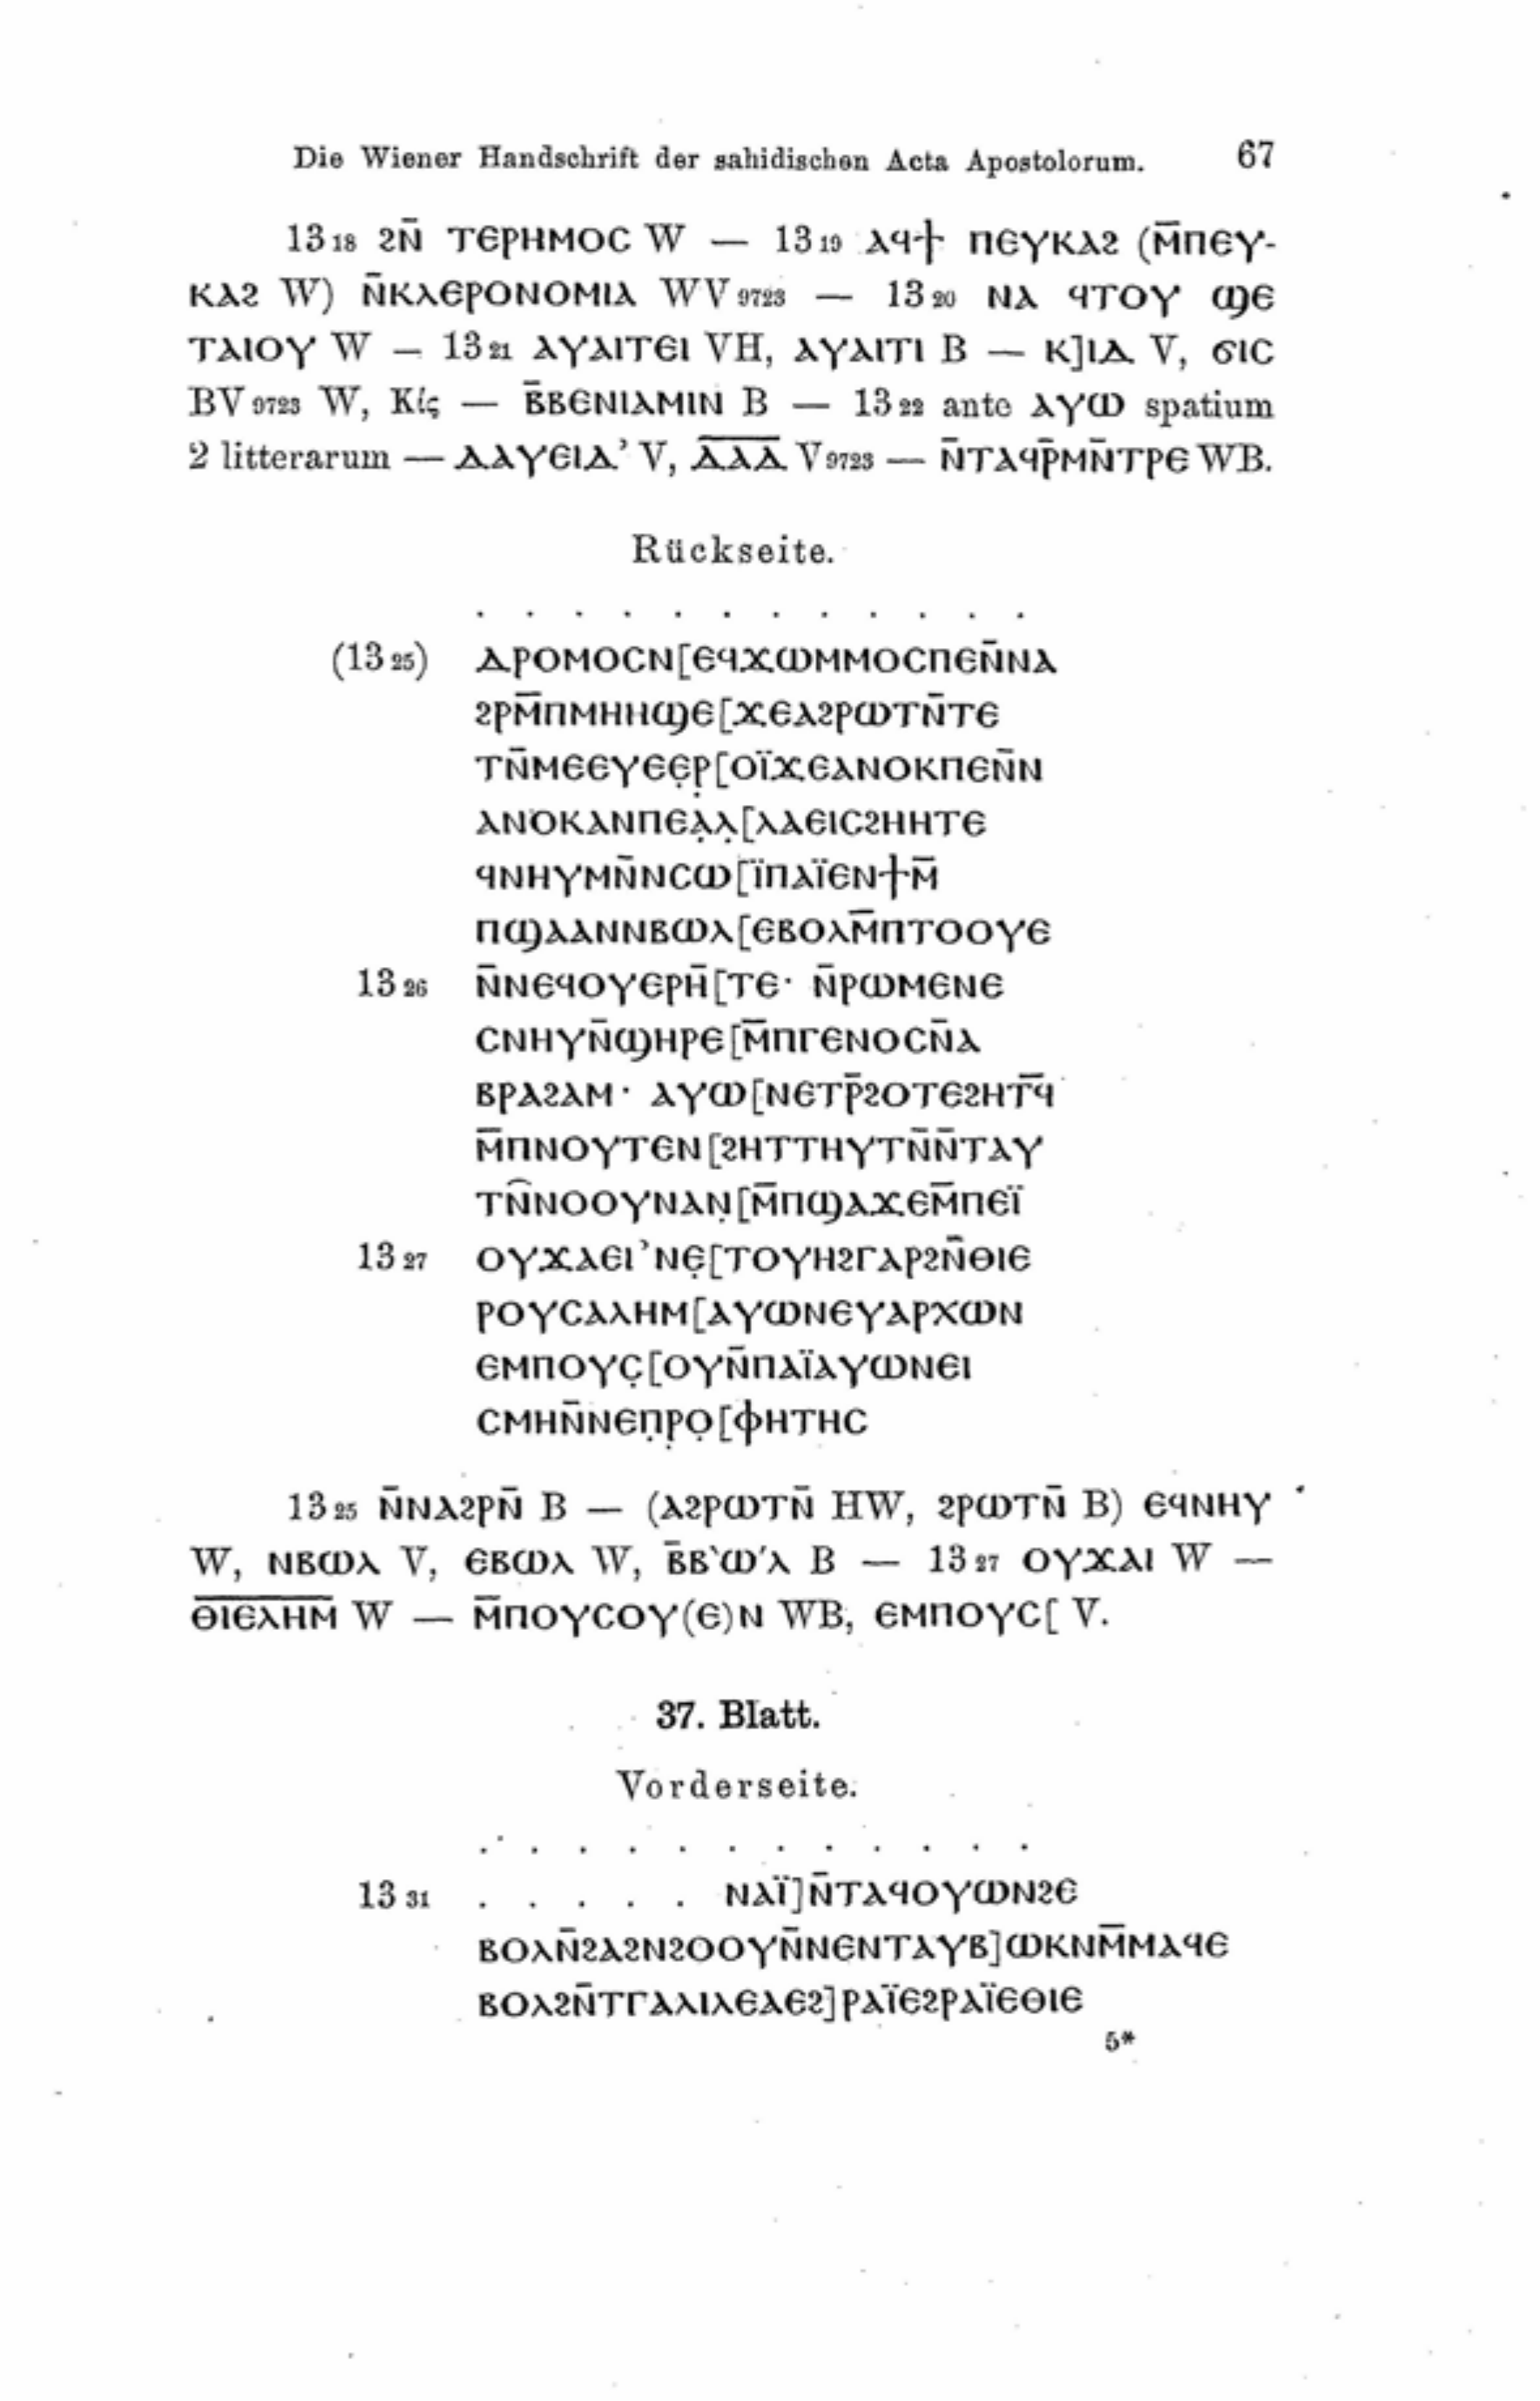 Die Wiener Handschrift der sahidischen Acta Apostolorum. 67
13 18 ϩⲛ̄ ⲧⲉⲣⲏⲙⲟⲥ W — 13 19 ⲁϥϯ ⲡⲉⲩⲕⲁϩ (ⲙ̄ⲡⲉⲩ-
ⲕⲁϩ W) ⲛ̄ⲕⲗⲉⲣⲟⲛⲟⲙⲓⲁ WV 9723 — 13 20 ⲛⲁ ϥⲧⲟⲩ ϣⲉ
ⲧⲁⲓⲟⲩ W — 13 21 ⲁⲩⲁⲓⲧⲉⲓ VH, ⲁⲩⲁⲓⲧⲓ B — ⲕ]ⲓⲇ V, ϭⲓⲥ
BV 9723 W, Κίς — ⲃ̄ⲃⲉⲛⲓⲁⲙⲓⲛ B — 13 22 ante ⲁⲩⲱ spatium
2 litterarum — ⲇⲁⲩⲉⲓⲇ’ V, ⲇ̅ⲁ̅ⲇ̅ V 9723 — ⲛ̄ⲧⲁϥⲣ̄ⲙⲛ̄ⲧⲣⲉ WB.
Rückseite.
. . . . . . . . . . . .
(13 25) ⲇⲣⲟⲙⲟⲥⲛ[ⲉϥϫⲱⲙⲙⲟⲥⲡⲉⲛ̄ⲛⲁ
ϩⲣⲙ̄ⲡⲙⲏⲏϣⲉ[ϫⲉⲁϩⲣⲱⲧⲛ̄ⲧⲉ
ⲧⲛ̄ⲙⲉⲉⲩⲉⲉ̣ⲣ̣[ⲟⲓ̈ϫⲉⲁⲛⲟⲕⲡⲉⲛ̄ⲛ
ⲁⲛⲟⲕⲁⲛⲡⲉⲁ̣ⲗ̣[ⲗⲁⲉⲓⲥϩⲏⲏⲧⲉ
ϥⲛⲏⲩⲙⲛ̄ⲛⲥⲱ[ⲓ̈ⲡⲁⲓ̈ⲉⲛϯⲙ̄
ⲡϣⲁⲁⲛⲛⲃⲱⲗ[ⲉⲃⲟⲗⲙ̄ⲡⲧⲟⲟⲩⲉ
13 26 ⲛ̄ⲛⲉϥⲟⲩⲉⲣⲏ̄[ⲧⲉ· ⲛ̄ⲣⲱⲙⲉⲛⲉ
ⲥⲛⲏⲩⲛ̄ϣⲏⲣⲉ[ⲙ̄ⲡⲅⲉⲛⲟⲥⲛ̄ⲁ
ⲃⲣⲁϩⲁⲙ· ⲁⲩⲱ[ⲛⲉⲧⲣ̄ϩⲟⲧⲉϩⲏⲧϥ̄
ⲙ̄ⲡⲛⲟⲩⲧⲉⲛ[ϩⲏⲧⲧⲏⲩⲧⲛ̄ⲛ̄ⲧⲁⲩ
ⲧⲛ̑ⲛⲟⲟⲩⲛⲁⲛ̣[ⲙ̄ⲡϣⲁϫⲉⲙ̄ⲡⲉⲓ̈
13 27 ⲟⲩϫⲁⲉⲓ’ⲛⲉ̣[ⲧⲟⲩⲏϩⲅⲁⲣϩⲛ̄ⲑⲓⲉ
ⲣⲟⲩⲥⲁⲗⲏⲙ[ⲁⲩⲱⲛⲉⲩⲁⲣⲭⲱⲛ
ⲉⲙⲡⲟⲩⲥ̣[ⲟⲩⲛ̄ⲡⲁⲓ̈ⲁⲩⲱⲛⲉⲓ
ⲥⲙⲏⲛ̄ⲛⲉⲡ̣ⲣ̣ⲟ̣[ⲫⲏⲧⲏⲥ
13 25 ⲛ̄ⲛⲁϩⲣⲛ̄ B — (ⲁϩⲣⲱⲧⲛ̄ HW, ϩⲣⲱⲧⲛ̄ B) ⲉϥⲛⲏⲩ
W, ⲛⲃⲱⲗ V, ⲉⲃⲱⲗ W, ⲃ̄ⲃ‵ⲱ′ⲗ B — 13 27 ⲟⲩϫⲁⲓ W —
ⲑ̅ⲓ̅ⲉ̅ⲗ̅ⲏ̅ⲙ̅ W — ⲙ̄ⲡⲟⲩⲥⲟⲩ(ⲉ)ⲛ WB, ⲉⲙⲡⲟⲩⲥ[ V.
37. Blatt.
Vorderseite.
. . . . . . . . . . . .
13 31 . . . . . ⲛⲁⲓ̈]ⲛ̄ⲧⲁϥⲟⲩⲱⲛϩⲉ
ⲃⲟⲗⲛ̄ϩⲁϩⲛϩⲟⲟⲩⲛ̄ⲛⲉⲛⲧⲁⲩⲃ]ⲱⲕⲛⲙ̄ⲙⲁϥⲉ
ⲃⲟⲗϩⲛ̄ⲧⲅⲁⲗⲓⲗⲉⲁⲉϩ]ⲣⲁⲓ̈ⲉϩⲣⲁⲓ̈ⲉⲑⲓⲉ
5*